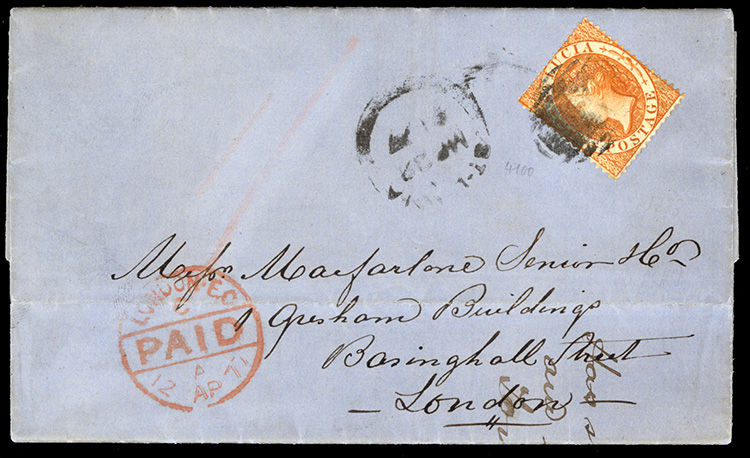 LUCIA POSTAGE
4100
Messrs Macfarlane Senior & Co
1 Gresham Buildings
Basinghall Street
London
LONDON E.C
C
PAID
A
12 AP 71